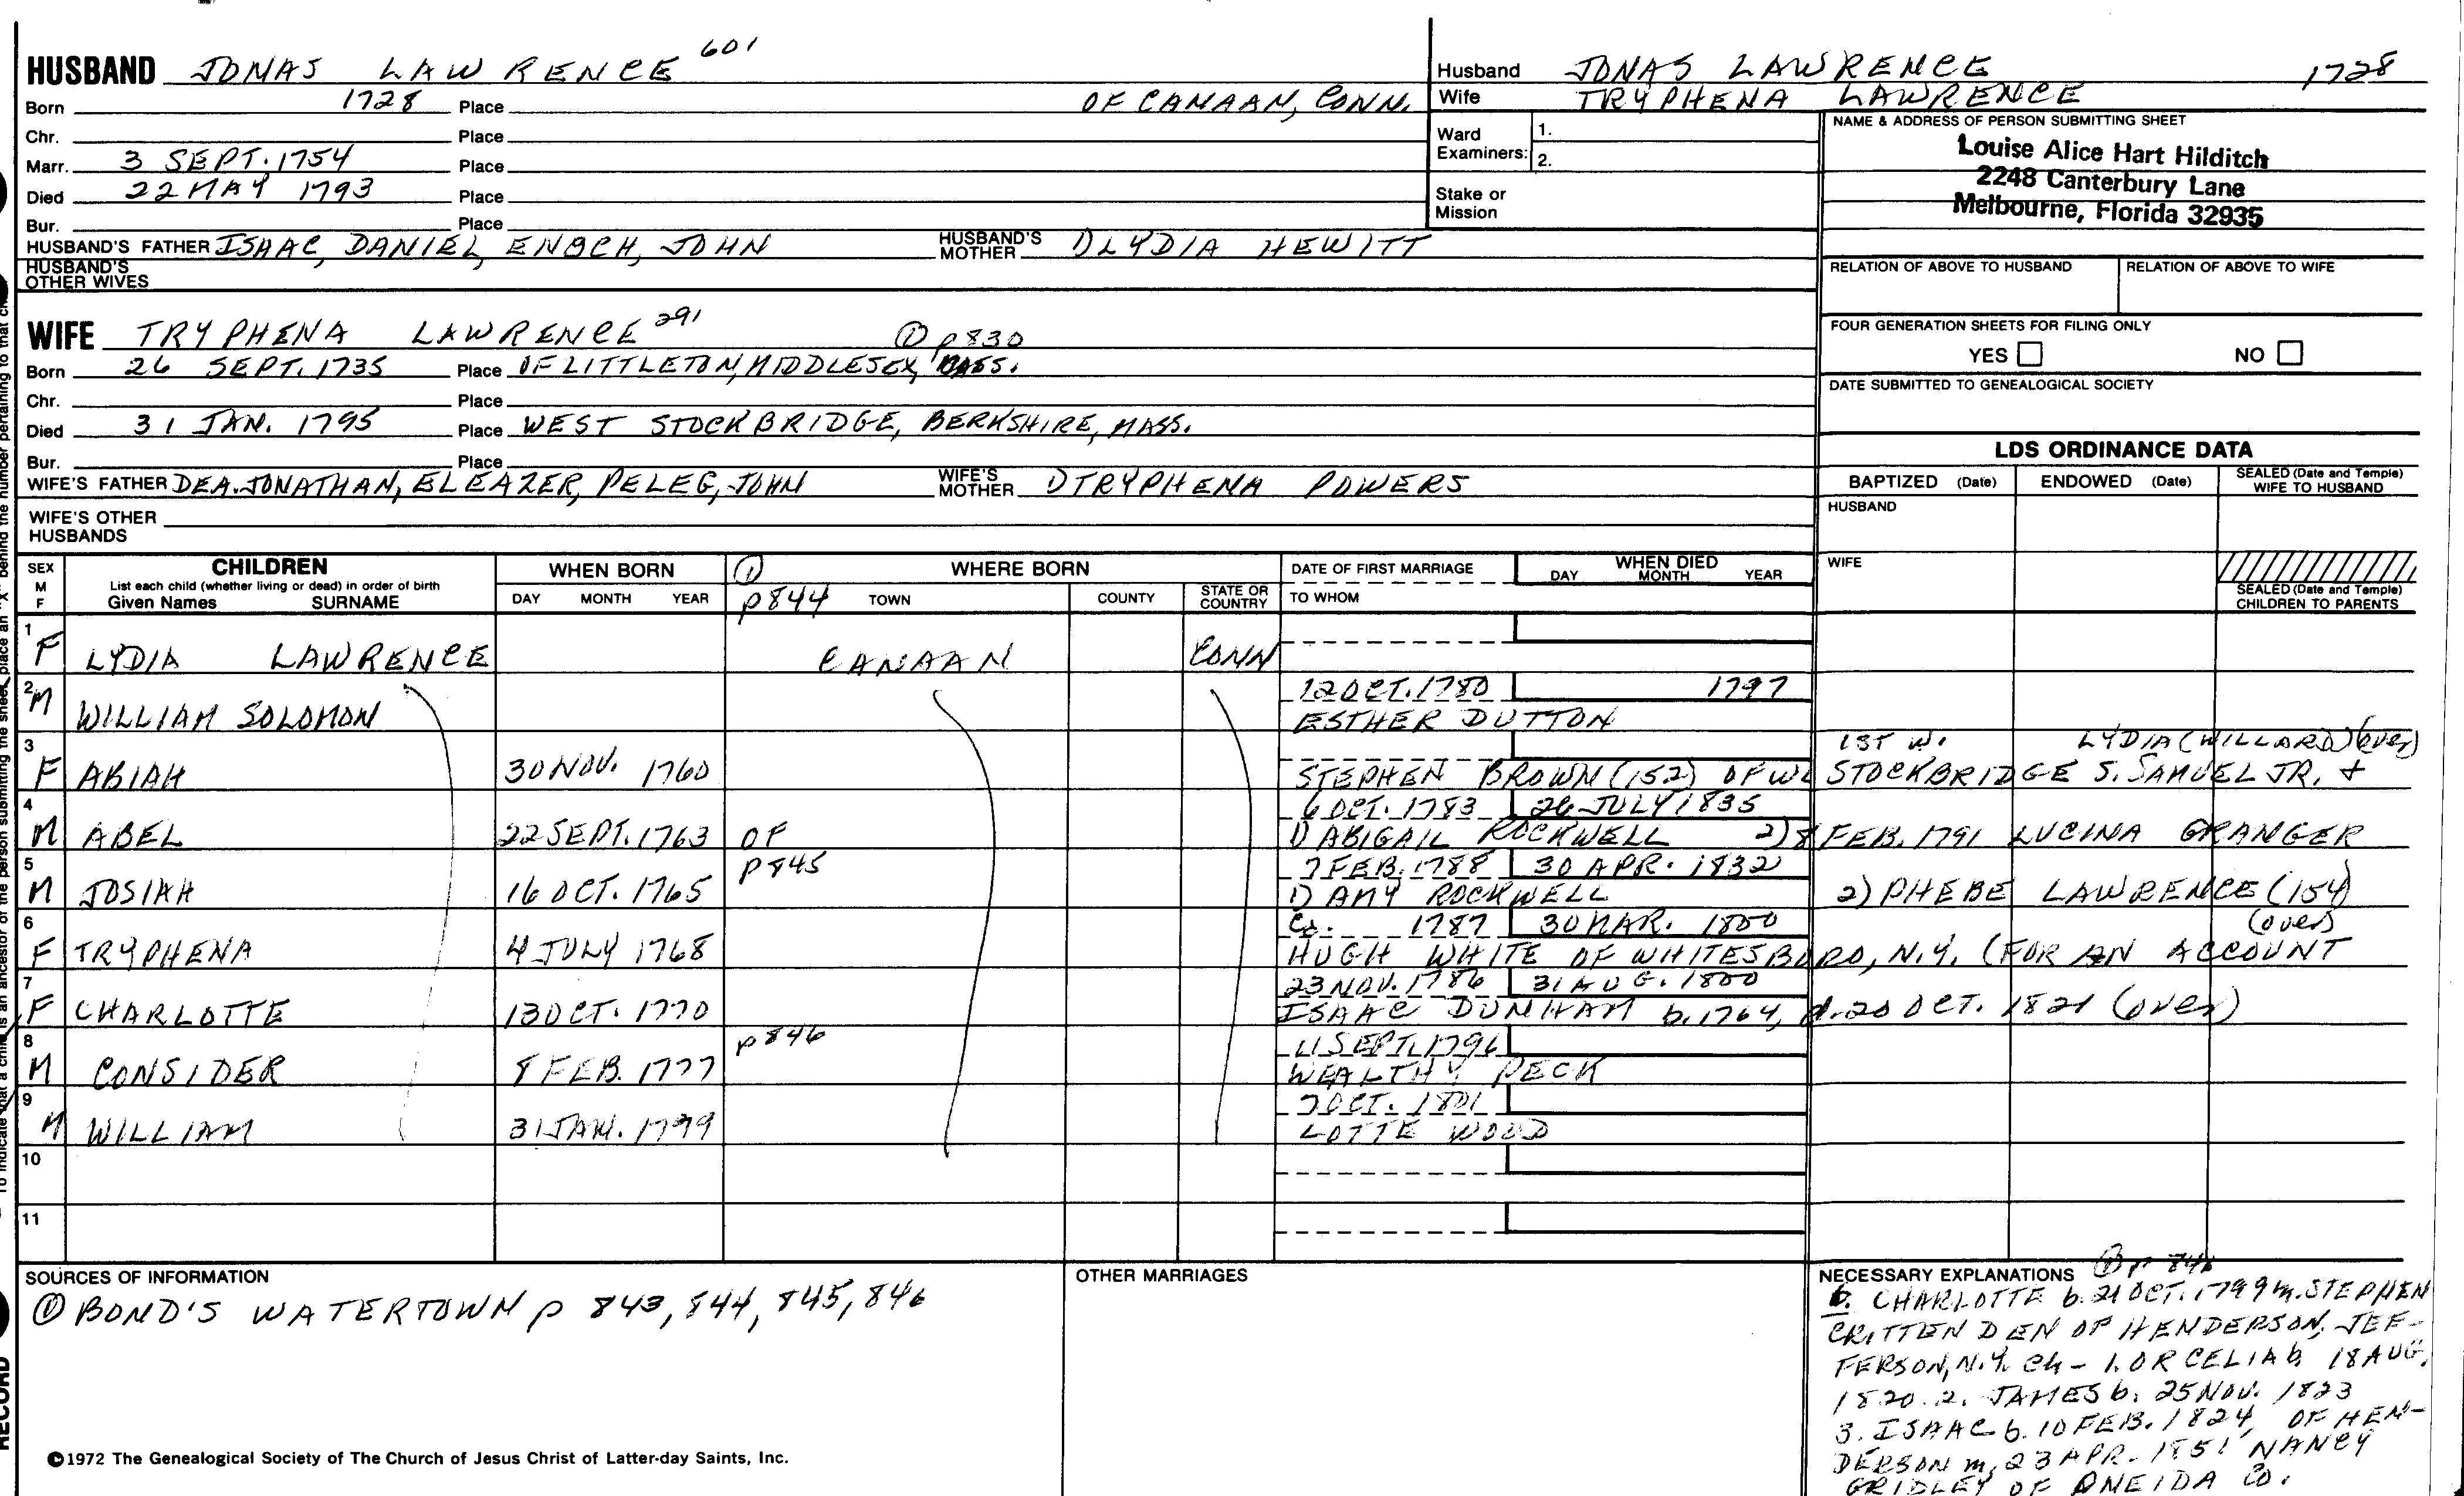 HUSBAND JONAS LAWRENCE 601
Born 1728 Place OF CANAAN, CONN.
Chr. Place
Marr. 3 SEPT. 1754 Place
Died 22 MAY 1793 Place
Bur. Place
HUSBAND'S FATHER ISAAC, DANIEL, ENOCH, JOHN HUSBAND'S MOTHER LYDIA HEWITT
HUSBAND'S OTHER WIVES
Husband JONAS LAWRENCE 1728
Wife TRYPHENA LAWRENCE
Ward Examiners: 1.
2.
Stake or Mission
NAME & ADDRESS OF PERSON SUBMITTING SHEET
Louise Alice Hart Hilditch
2248 Canterbury Lane
Melbourne, Florida 32935
RELATION OF ABOVE TO HUSBAND RELATION OF ABOVE TO WIFE
FOUR GENERATION SHEETS FOR FILING ONLY
YES NO
DATE SUBMITTED TO GENEALOGICAL SOCIETY
WIFE TRYPHENA LAWRENCE 291 ① p830
Born 26 SEPT. 1735 Place OF LITTLETON, MIDDLESEX, MASS.
Chr. Place
Died 31 JAN. 1795 Place WEST STOCKBRIDGE, BERKSHIRE, MASS.
Bur. Place
WIFE'S FATHER DEA. JONATHAN, ELEAZER, PELEG, JOHN WIFE'S MOTHER TRYPHENA POWERS
WIFE'S OTHER HUSBANDS
LDS ORDINANCE DATA
BAPTIZED (Date) ENDOWED (Date) SEALED (Date and Temple) WIFE TO HUSBAND
HUSBAND
WIFE
SEALED (Date and Temple) CHILDREN TO PARENTS
SEX M F CHILDREN List each child (whether living or dead) in order of birth Given Names SURNAME WHEN BORN DAY MONTH YEAR ① p844 WHERE BORN TOWN COUNTY STATE OR COUNTRY DATE OF FIRST MARRIAGE TO WHOM WHEN DIED DAY MONTH YEAR
1 F LYDIA LAWRENCE CANAAN CONN
2 M WILLIAM SOLOMON 12 OCT. 1780 1797
ESTHER DUTTON
3 F ABIAH 30 NOV. 1760 1ST W. LYDIA (WILLARD) (over)
STEPHEN BROWN (152) OF W. STOCKBRIDGE S. SAMUEL JR. +
4 M ABEL 22 SEPT. 1763 OF 6 OCT. 1783 26 JULY 1835
1) ABIGAIL ROCKWELL 2) 8 FEB. 1791 LUCINA GRANGER
5 M JOSIAH 16 OCT. 1765 p845 7 FEB. 1788 30 APR. 1832
1) AMY ROCKWELL 2) PHEBE LAWRENCE (154)
6 F TRYPHENA 4 JULY 1768 Ca. 1787 30 MAR. 1800 (over)
HUGH WHITE OF WHITESBORO, N.Y. (FOR AN ACCOUNT
7 F CHARLOTTE 13 OCT. 1770 23 NOV. 1786 31 AUG. 1800
ISAAC DUNHAM b. 1764, d. 20 OCT. 1821 (over)
8 M CONSIDER 8 FEB. 1777 p846 11 SEPT. 1796
WEALTHY PECK
9 M WILLIAM 31 JAN. 1779 7 OCT. 1801
LOTTE WOOD
10
11
SOURCES OF INFORMATION
① BOND'S WATERTOWN p 843, 844, 845, 846
OTHER MARRIAGES
NECESSARY EXPLANATIONS ① p 846
6. CHARLOTTE b. 21 OCT. 1799 m. STEPHEN
CRITTENDEN OF HENDERSON, JEF-
FERSON, N.Y. Ch - 1. ORCELIA b 18 AUG.
1820. 2. JAMES b. 25 NOV. 1823
3. ISAAC b. 10 FEB. 1824, OF HEN-
DERSON m. 23 APR. 1851 NANCY
GRIDLEY OF ONEIDA CO.
©1972 The Genealogical Society of The Church of Jesus Christ of Latter-day Saints, Inc.
RECORD